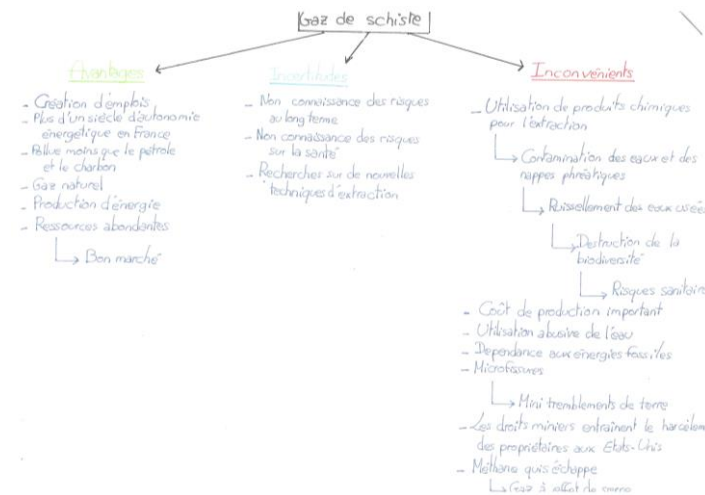 Gaz de schiste
Avantages
- Création d'emplois
- Plus d'un siècle d'autonomie
énergétique en France
- Pollue moins que le pétrole
et le charbon
- Gaz naturel
- Production d'énergie
- Ressources abondantes
Bon marché
Incertitudes
- Non connaissance des risques
au long terme
- Non connaissance des risques
sur la santé
- Recherches sur de nouvelles
techniques d'extraction
Inconvénients
- Utilisation de produits chimiques
pour l'extraction
Contamination des eaux et des
nappes phréatiques
Ruissellement des eaux usée
Destruction de la
biodiversité
Risques sanitaire
- Coût de production important
- Utilisation abusive de l'eau
- Dependance aux énergies fossiles
- Microfissures
Mini tremblements de terre
- Les droits miniers entraînent le harcèlem
des propriétaires aux Etats-Unis
- Méthane qui s'échappe
Gaz à effet de serre